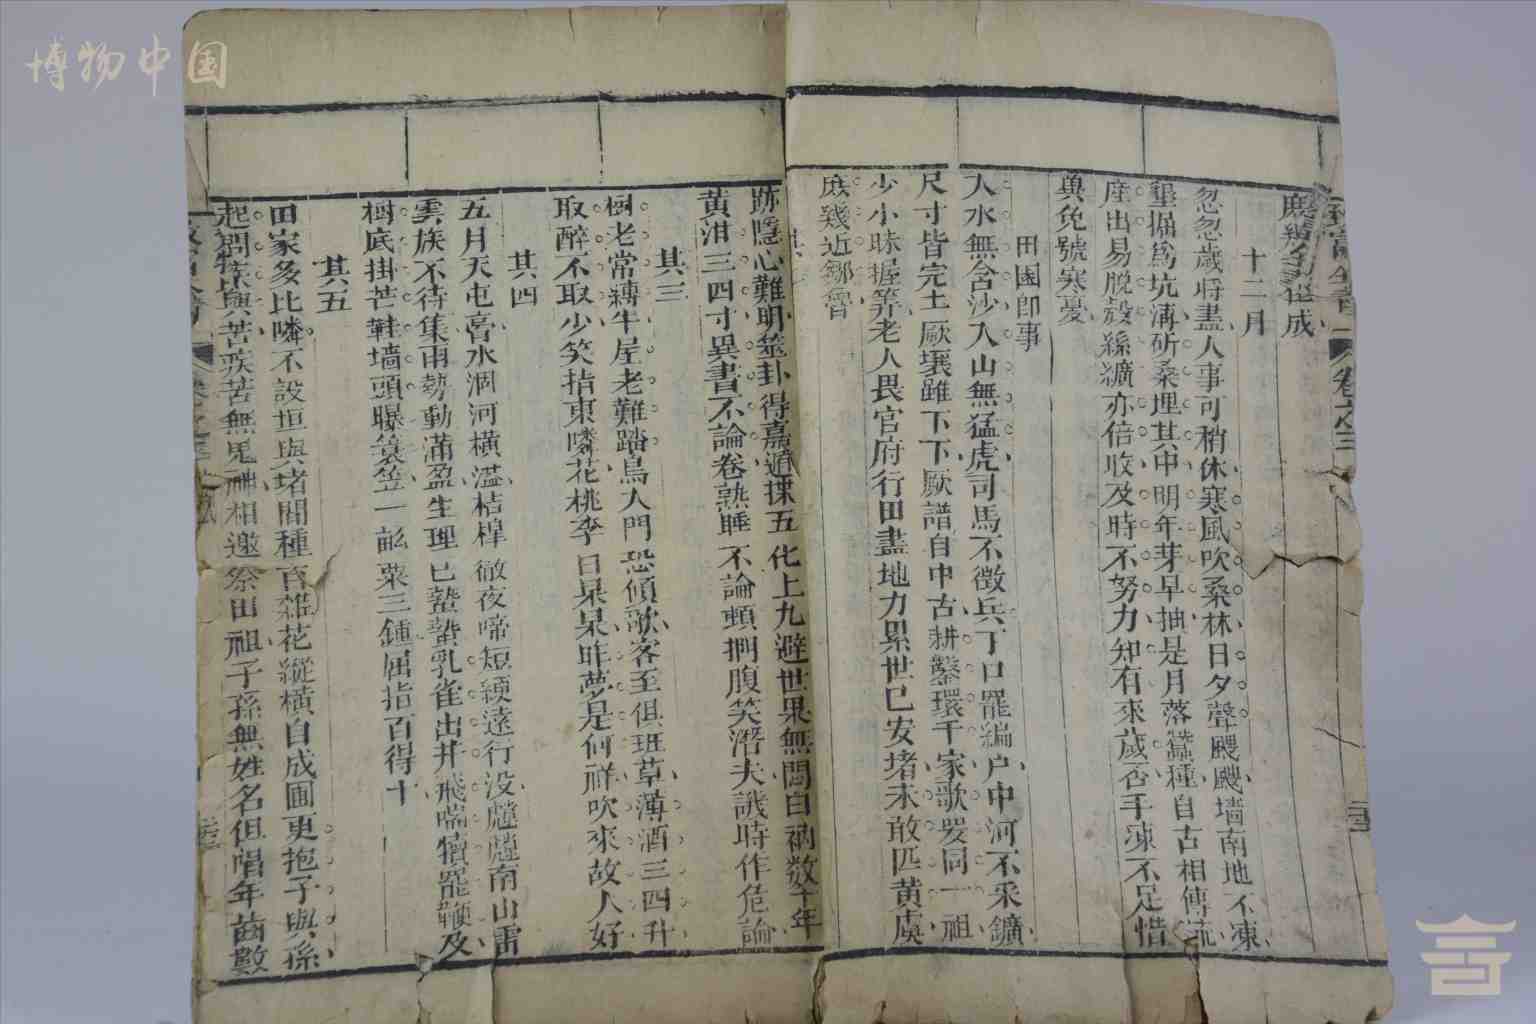 博物中国
庶幾各遂成
十二月
忽忽歲將盡人事可稍休寒風吹桑林日夕聲颼颼墻南地不凍
墾掘爲坑溝斫桑埋其中明年芽早抽是月落蠶種自古相傳流
產出易脫殼絲纊亦倍收及時不努力知有來歲否手凍不足惜
與免號寒憂
田園卽事
入水無含沙入山無猛虎司馬不徵兵丁口罷編户中河不采鑛
尺寸皆完土厥壤雖下下厥譜自中古耕鑿環千家歌哭同一祖
少小昧握筭老人畏官府行田盡地力累世已安堵未敢匹黄虞
庶幾近鄒魯
跡隱心難明筮卦得嘉遁揲五化上九避世果無悶白衲数千年
黄泔三四寸異書不論卷熟睡不論頓捫腹笑潛夫譏時作危論
其三
樹老常縛牛屋老難踏鳥入門恐傾歌客至俱班草薄酒三四升
取醉不取少笑指東隣花桃李日杲杲昨夢是何祥吹來故人好
其四
五月天屯膏水涸河橫溢桔槹徹夜啼短綆遠行没魑魖南山雷
雲族不待集雨勢動滿盈生理已蟄蟄乳雀出井飛喘犢罷鞭及
樹底掛芒鞋墻頭曝簑笠一畝粟三鍾屈指百得十
其五
田家多比隣不設垣與堵閒種百雜花縱橫自成圃更抱子與孫
起測與苦疾苦無鬼神相邀祭田祖子孫無姓名但唱年齒數